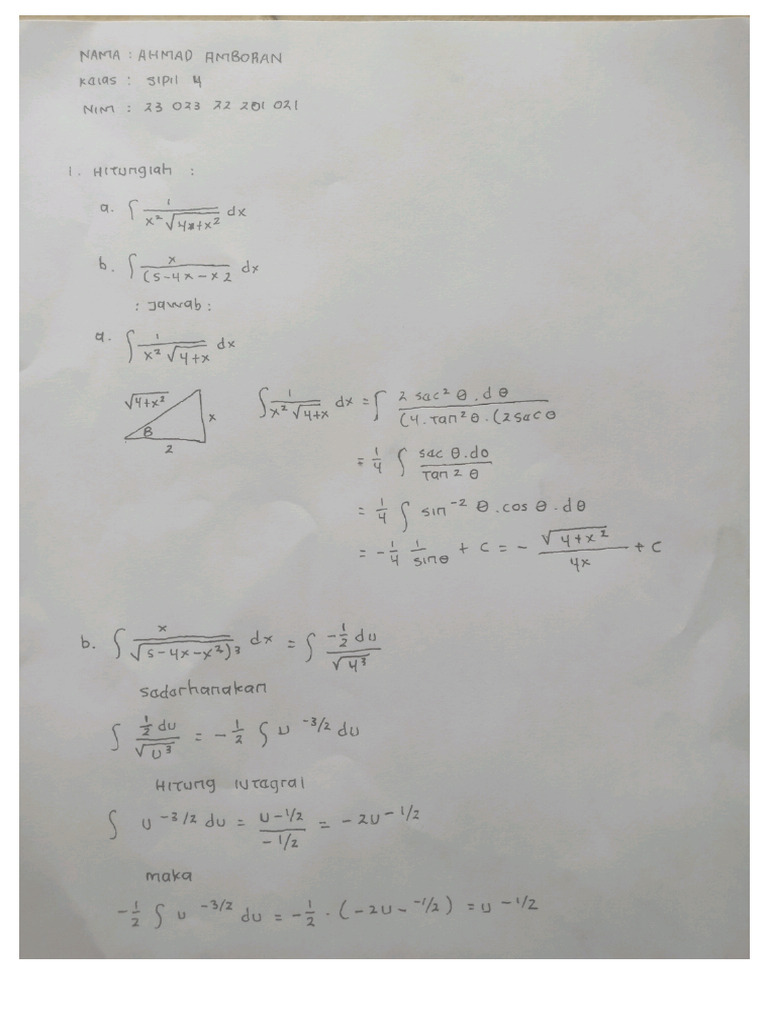 NAMA : AHMAD AMBORAN
Kalas : SIPIL 4
NIM : 23 023 22 201 021
1. HITUNGLAH :
a. ∫ 1/(x² √(4x+x²)) dx
b. ∫ x/(5-4x-x2 dx
: Jawab :
a. ∫ 1/(x² √(4+x)) dx
√(4+x²) x θ 2
∫ 1/(x² √(4+x)) dx = ∫ 2 sac² θ . d θ/(4. Tan² θ . (2 sac θ
= 1/4 ∫ sac θ . do/Tan 2 θ
= 1/4 ∫ sin⁻² θ . cos θ . dθ
= -1/4 1/sinθ + C = - √(4+x²)/4x + C
b. ∫ x/√(5-4x-x²)3 dx = ∫ -1/2 du/√4³
sadarhanakan
∫ 1/2 du/√U³ = -1/2 ∫ U -3/2 du
HITUNG IUTAGRAL
∫ U -3/2 du = U-1/2/-1/2 = -2U -1/2
maka
-1/2 ∫ U -3/2 du = -1/2 . (-2U- -1/2) = U -1/2